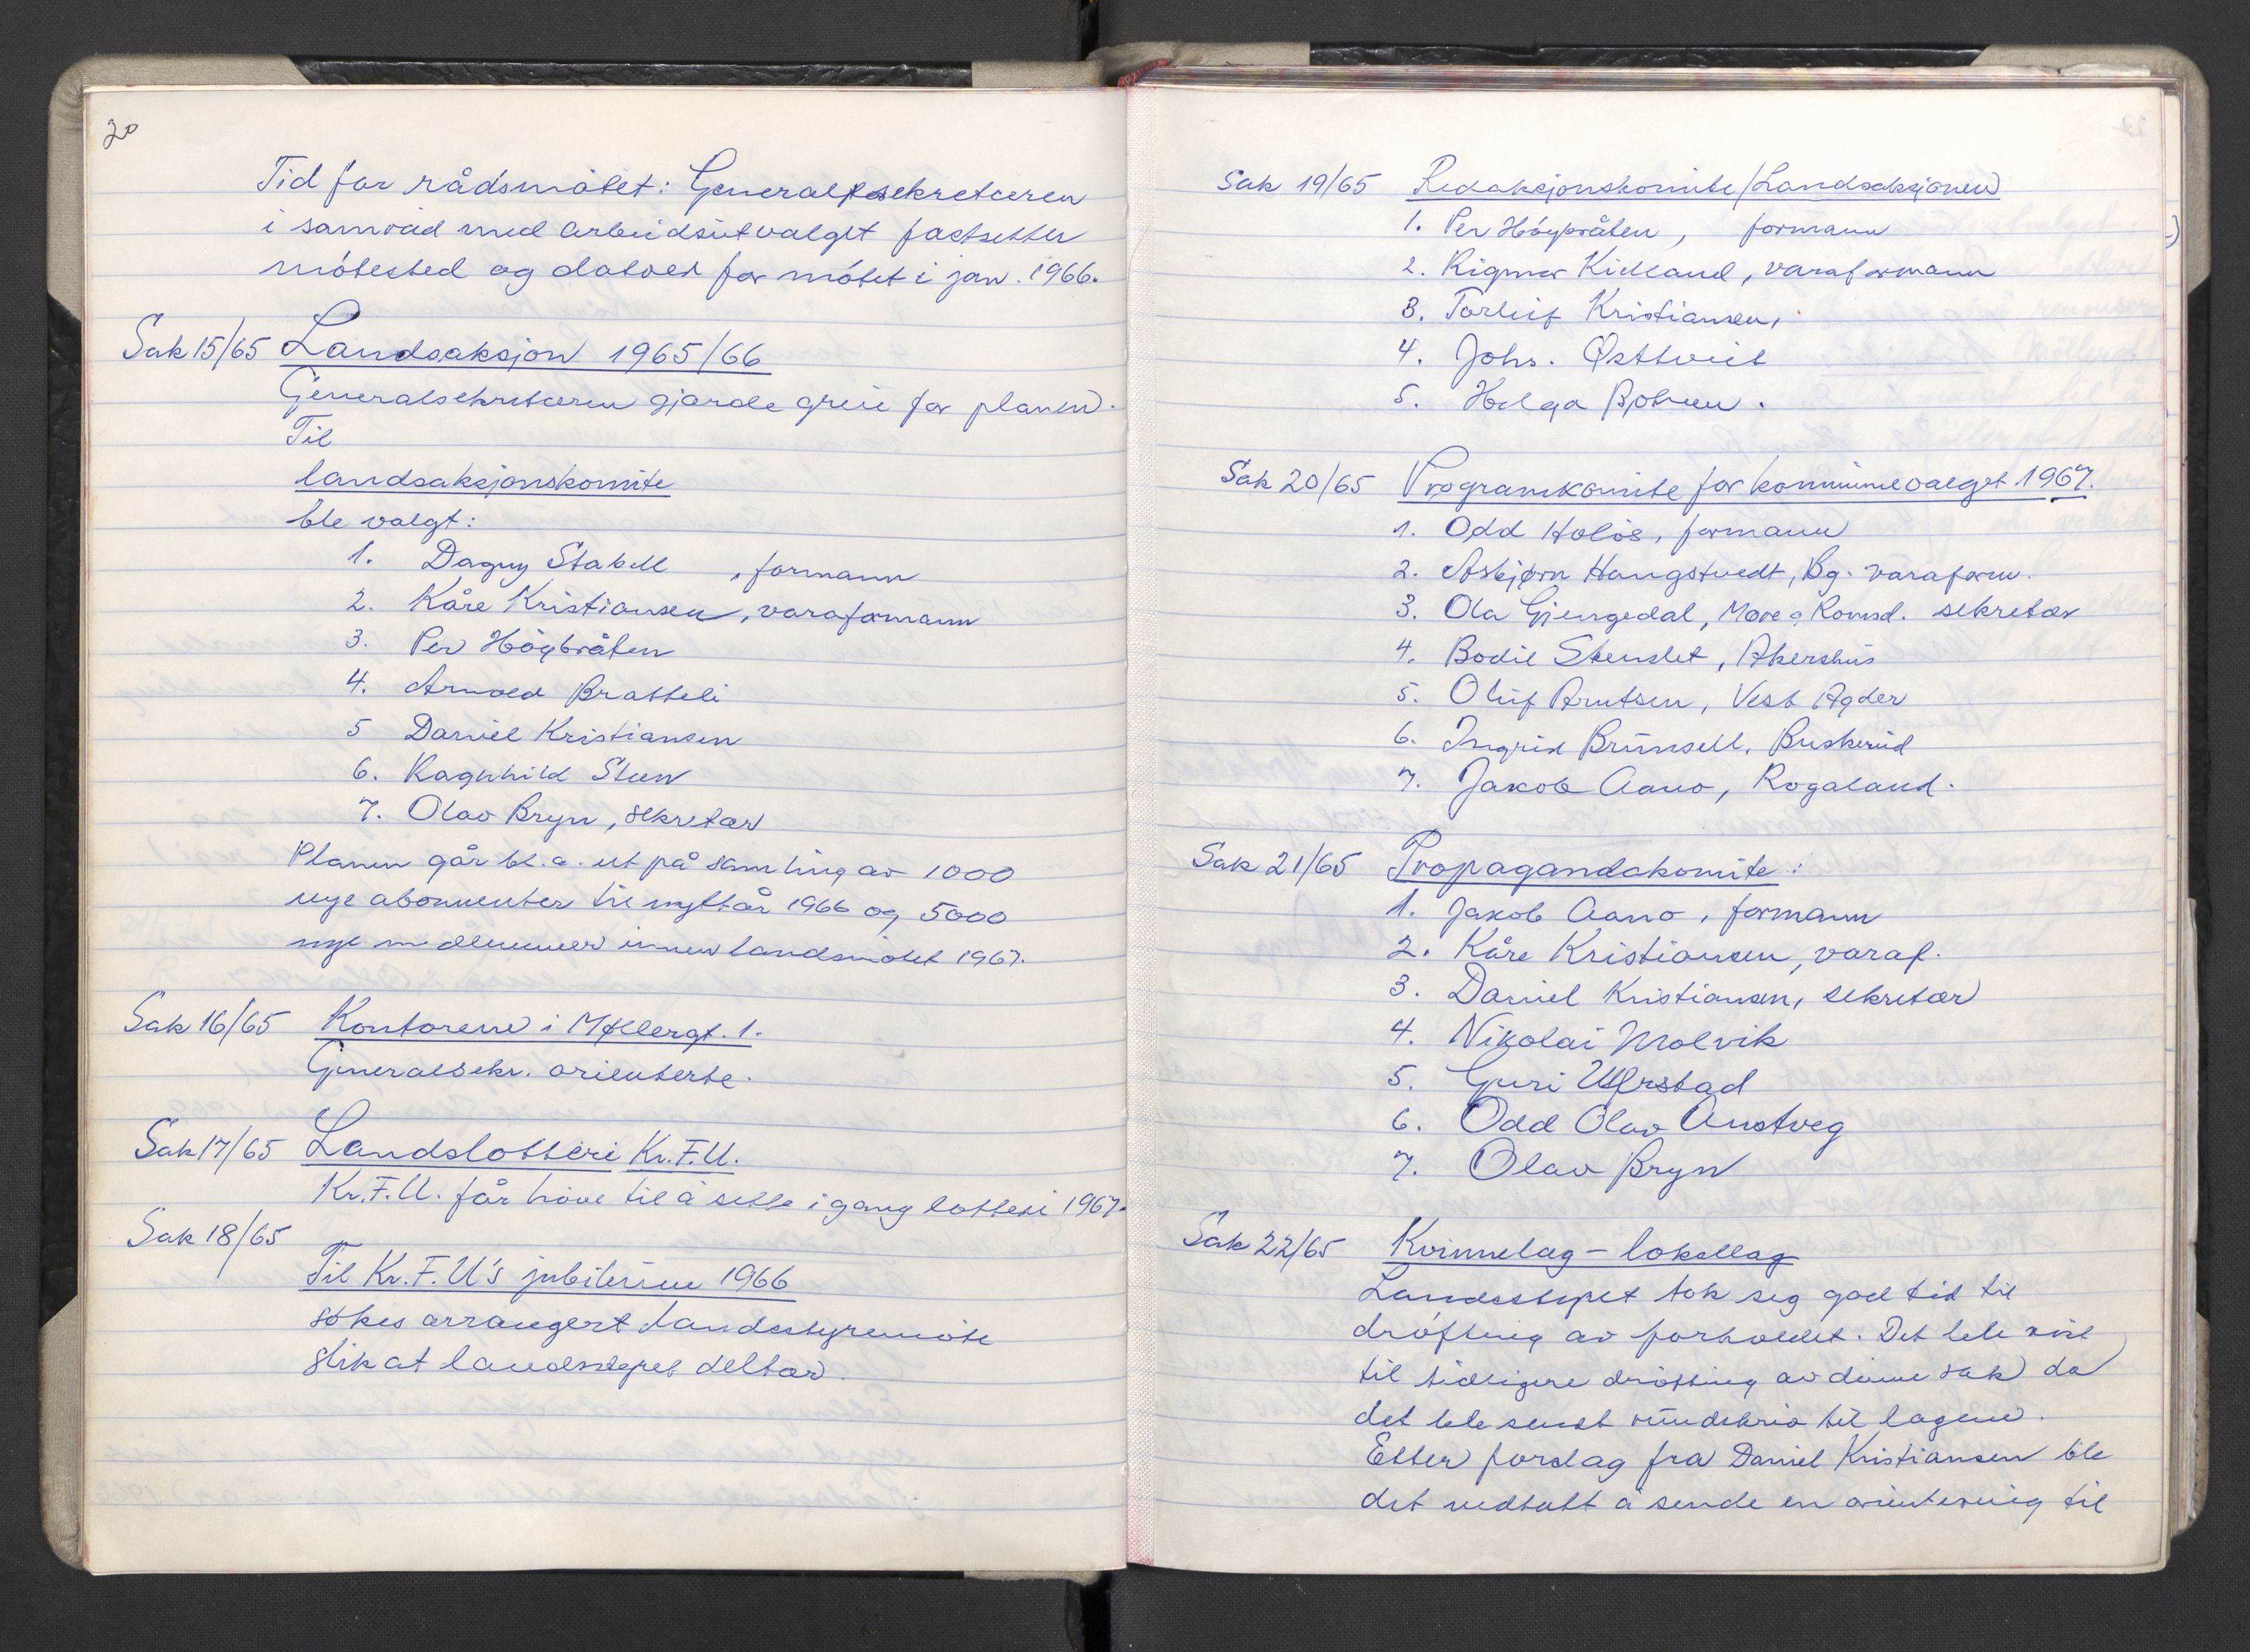 20
Tid for rådsmötet: Generalsekretæren
i samråd med arbeidsutvalget fastsetter
mötested og datoer for mötet i jan. 1966.
Sak 15/65 Landsaksjon 1965/66
Generalsekretæren gjorde greie for planen.
Til
landsaksjonskomite
ble valgt:
1. Dagny Stabell, formann
2. Kåre Kristiansen, varaformann
3. Per Högbråten
4. Arnold Bratteli
5 Daniel Kristiansen
6. Ragnhild Steen
7. Olav Bryn, sekretær
Planen går bl.a. ut på samling av 1000
nye abonnenter til nyttår 1966 og 5000
nye medlemmer innen landsmötet 1967.
Sak 16/65 Kontorene i Møllergt. 1.
Generalsekr. orienterte.
Sak 17/65 Landslotteri Kr.F.U.
Kr.F.U. får höve til å sette i gang lotteri 1967.
Sak 18/65
Til Kr.F.U's jubileum 1966
sökes arrangert Landsstyremöte
slik at landsstyret deltar.
Sak 19/65 Redaksjonskomite/Landsaksjonen
1. Per Högbråten, formann
2. Rigmor Kielland, varaformann
3. Torleif Kristiansen,
4. Johs. Østtveit
5. Helga
Sak 20/65 Programkomite for kommunevalget 1967.
1. Odd Holös, formann
2. Asbjørn Haugstvedt, Bg. varaform.
3. Ola Gjengedal, Møre o Romsd. sekretær
4. Bodil Stenslet, Akershus
5. Oluf Arntsen, Vest Agder
6. Ingrid Brunsell, Buskerud
7. Jakob Aano, Rogaland.
Sak 21/65 Propagandakomite:
1. Jakob Aano, formann
2. Kåre Kristiansen, varaf.
3. Daniel Kristiansen, sekretær
4. Nikolai Molvik
5. Guri Ulfrstad
6. Odd Olav Austveg
7. Olav Bryn
Sak 22/65 Kvinnelag - lokallag
Landsstyret tok seg god tid til
dröfting av forholdet. Det ble vist
til tidligere dröfting av denne sak da
det ble sendt rundskriv til lagene.
Etter forslag fra Daniel Kristiansen ble
det vedtatt å sende en orientering til